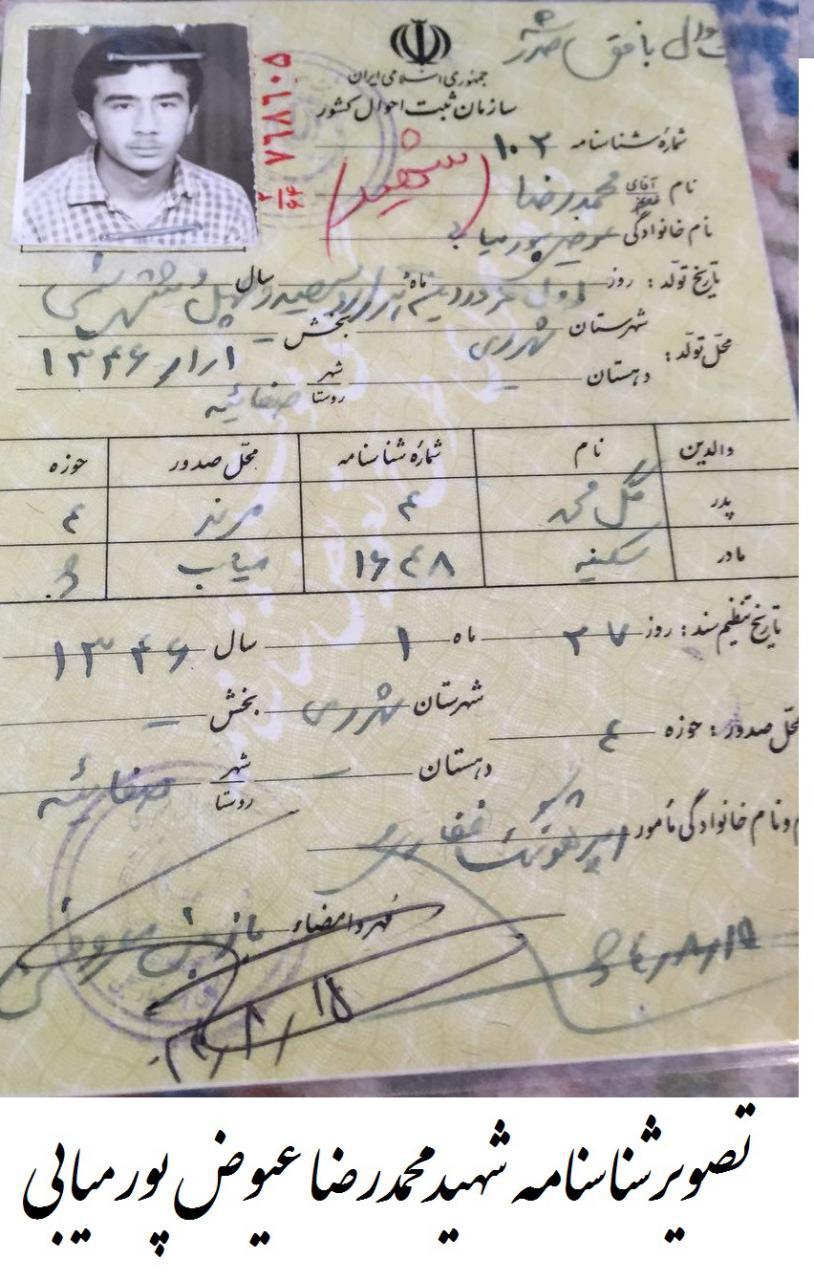 جمهوری اسلامی ایران
سازمان ثبت احوال کشور
۷۶۸۶۰۵
شمارهٔ شناسنامه ۱۰۲
(شهید)
نام آقای محمدرضا
نام خانوادگی عوض پور میابی
تاریخ تولد: روز اول فروردین ماه سال یکهزار و سیصد و چهل و شش شمسی
محل تولد: شهرستان شهرری بخش –
۱۳۴۶/۱/۱
دهستان – شهر روستا صفائیه
والدین نام شمارهٔ شناسنامه محل صدور حوزه
پدر گل محمد ۴ مرند ۴
مادر سکینه ۱۶۴۸ میاب
تاریخ تنظیم سند: روز ۲۷ ماه ۱ سال ۱۳۴۶
محل صدور: حوزه ۴ شهرستان شهرری بخش –
دهستان – شهر روستا صفائیه
نام خانوادگی مأمور
مهر و امضاء
۶۴/۸/۱۵
تصویر شناسنامه شهید محمدرضا عیوض پور میابی